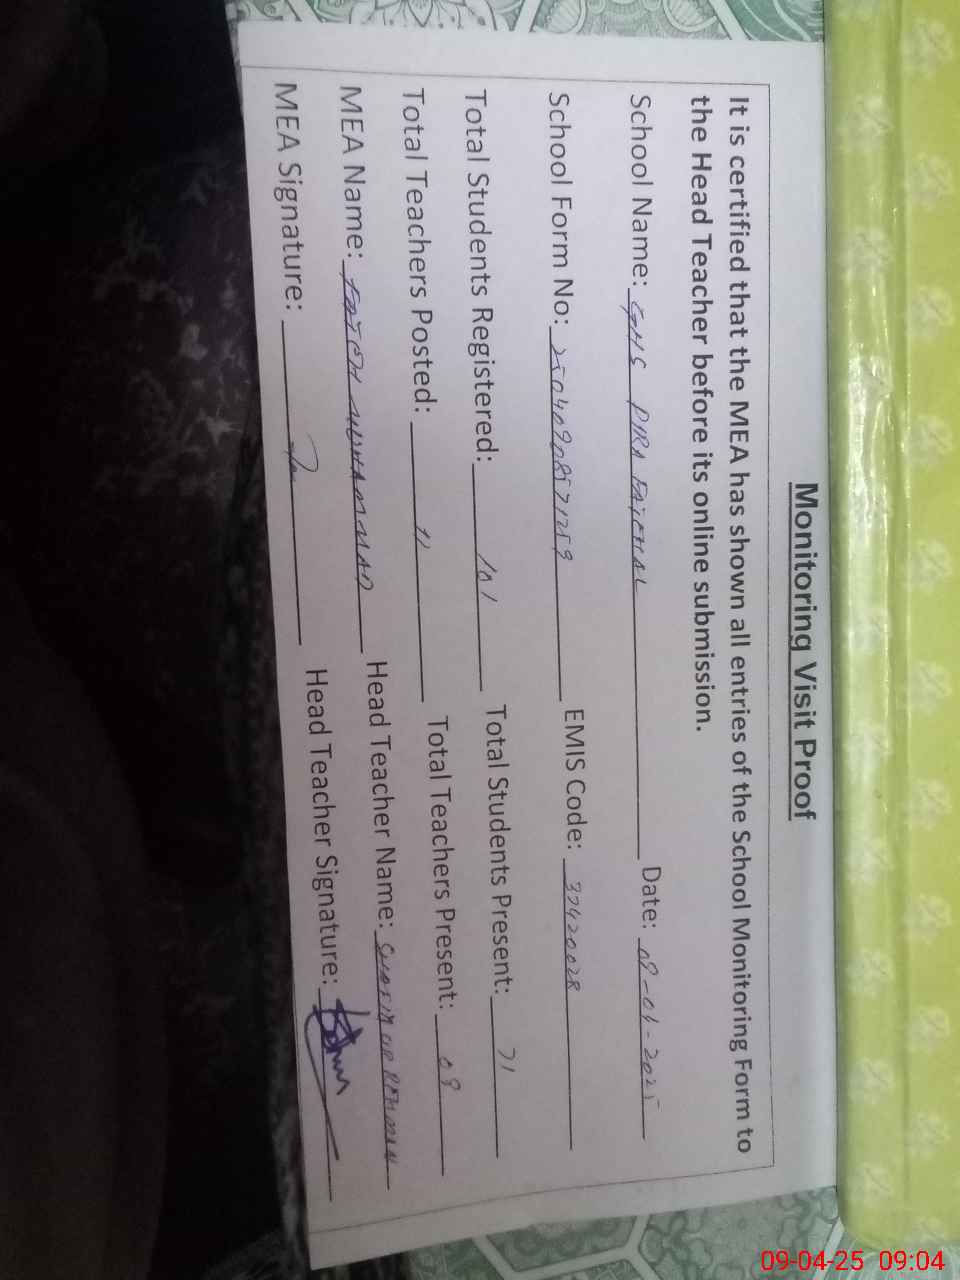 Monitoring Visit Proof
It is certified that the MEA has shown all entries of the School Monitoring Form to
the Head Teacher before its online submission.
School Name: GHS PIRA FATEHAL Date: 09-04-2025
School Form No: 25040908571259 EMIS Code: 37420028
Total Students Registered: 101 Total Students Present: 71
Total Teachers Posted: 11 Total Teachers Present: 09
MEA Name: FATEH MUHAMMAD Head Teacher Name: REHMAN
MEA Signature: Head Teacher Signature:
09-04-25 09:04